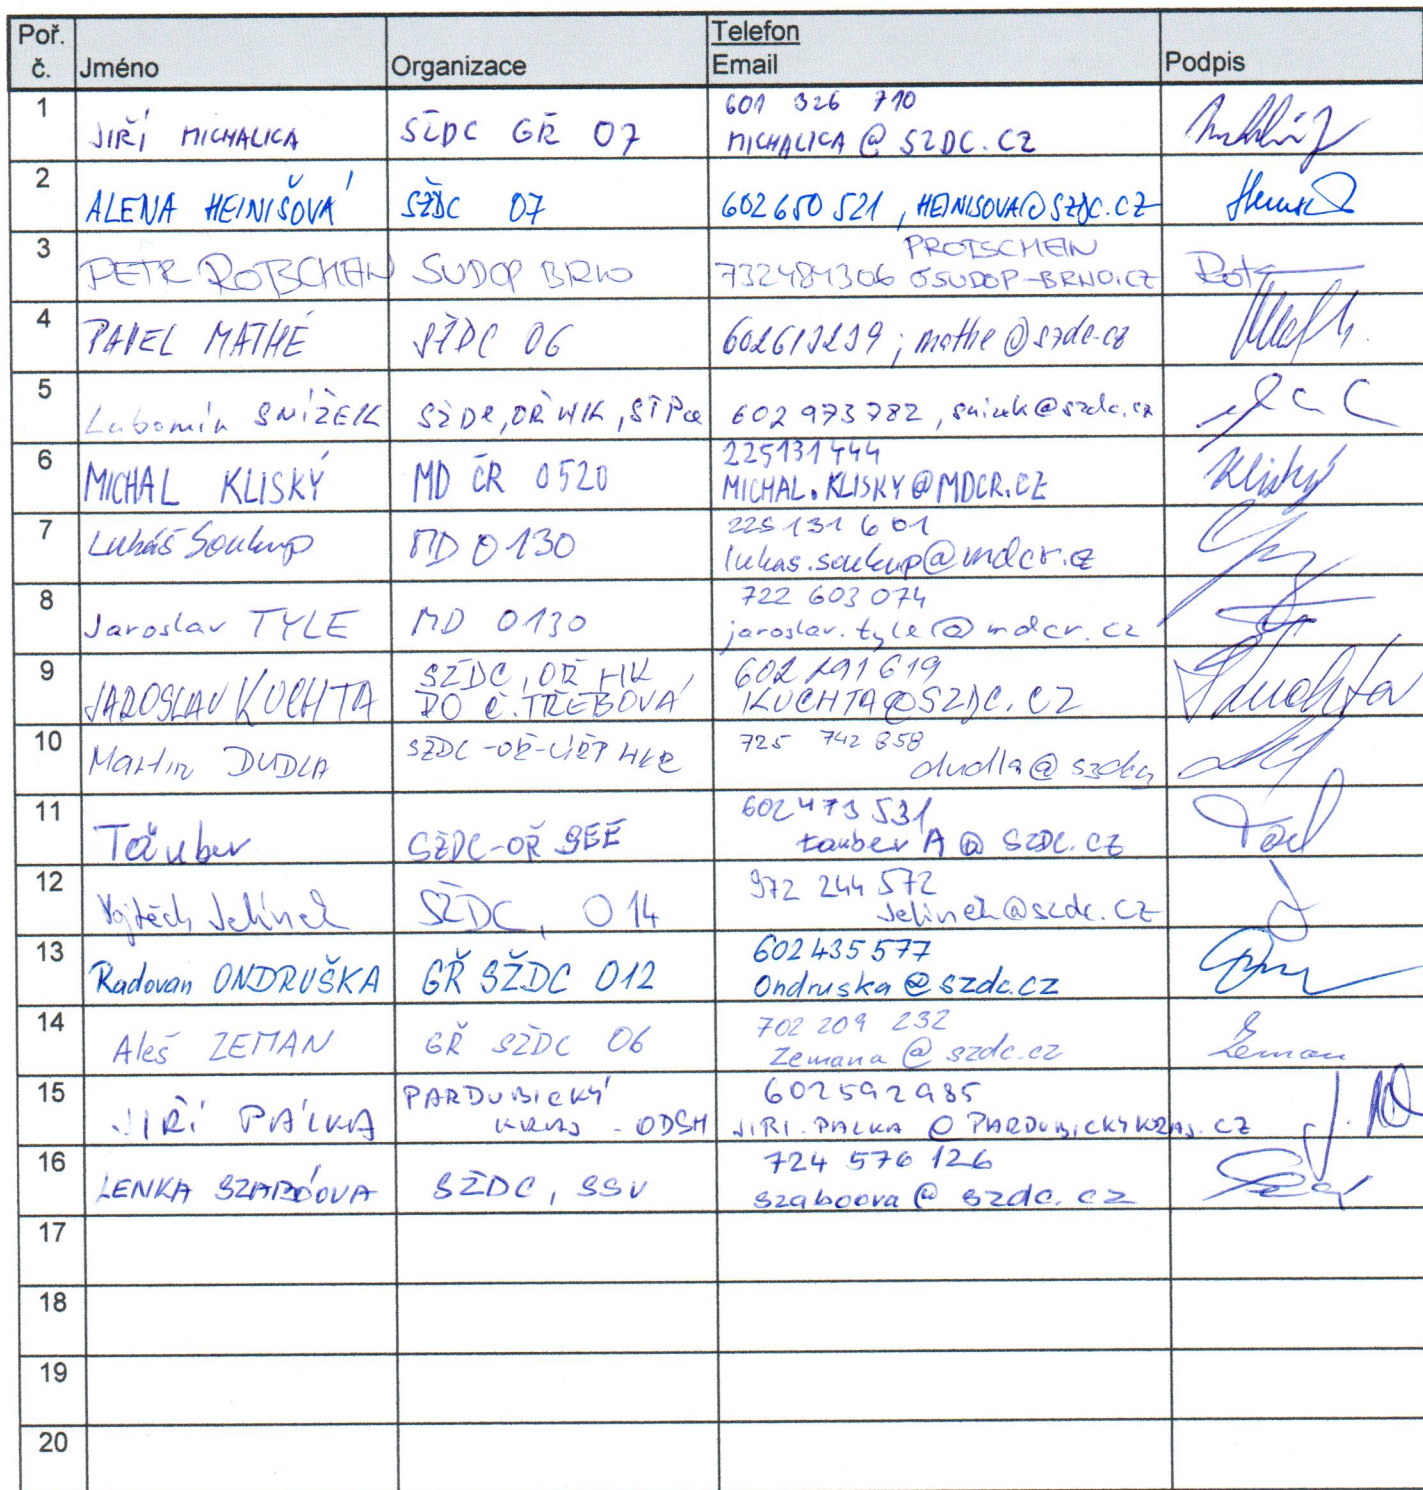 Poř. č. Jméno Organizace Telefon Email Podpis
1 JIŘÍ MICHALICA SŽDC GŘ O7 601 326 710
MICHALICA @ SZDC.CZ
2 ALENA HEINIŠOVÁ SŽDC O7 602 650 521, HEINISOVA@SZDC.CZ
3 PETR ROTSCHEIN SUDOP BRNO PROTSCHEIN
732481306 @SUDOP-BRNO.CZ
4 PAVEL MATHÉ SŽDC O6 602613239; mathe@szdc.cz
5 Lubomír SNÍŽEK SŽDC, OŘ HK, 602 973 782, @szdc.cz
6 MICHAL KLISKÝ MD ČR 0520 225131444
MICHAL.KLISKY@MDCR.CZ
7 Lukáš Soukup MD O130 225 131 601
lukas.soukup@mdcr.cz
8 Jaroslav TYLE MD O130 722 603 074
jaroslav.tyle@mdcr.cz
9 JAROSLAV KUCHTA SŽDC, OŘ HK 602 291 619
PO Č. TŘEBOVÁ KUCHTA@SZDC.CZ
10 Martin DUDLA SŽDC-OŘ- 725 742 858
dudla@
11 Täuber SŽDC-OŘ SEE 602 473 531
tauberA@SZDC.CZ
12 Vojtěch Jelínek SŽDC, O14 972 244 572
Jelinek@szdc.cz
13 Radovan ONDRUŠKA GŘ SŽDC O12 602435577
Ondruska@szdc.cz
14 Aleš ZEMAN GŘ SŽDC O6 702 209 232 Zeman
Zemana@szdc.cz
15 JIŘÍ PÁLKA PARDUBICKÝ 602592985
KRAJ - ODSH JIRI.PALKA@PARDUBICKYKRAJ.CZ
16 LENKA SZABÓOVÁ SŽDC, SSV 724 576 126
szaboova@szdc.cz
17
18
19
20